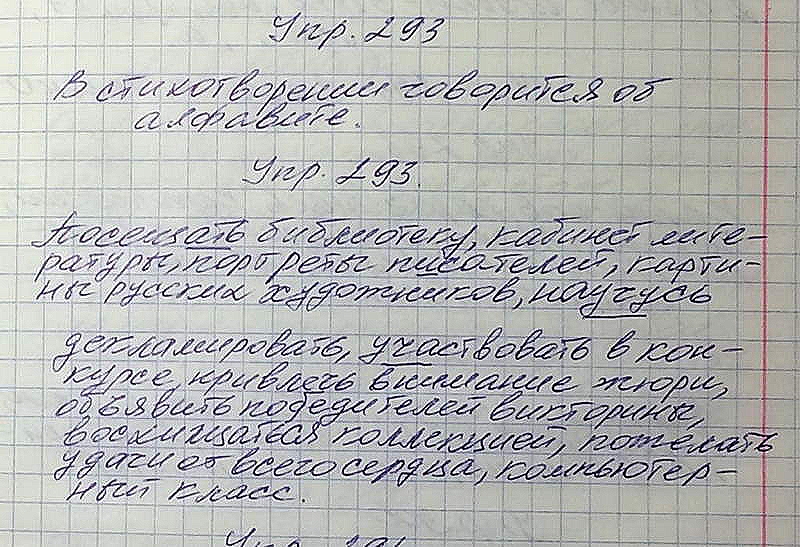 Упр. 293
В стихотворении говорится об
алфавите.
Упр. 293.
Посещать библиотеку, кабинет лите-
ратуры, портреты писателей, карти-
ны русских художников, научусь
декламировать, участвовать в кон-
курсе, привлечь внимание жюри,
объявить победителей викторины,
восхищаться коллекцией, пожелать
удачи от всего сердца, компьютер-
ный класс.